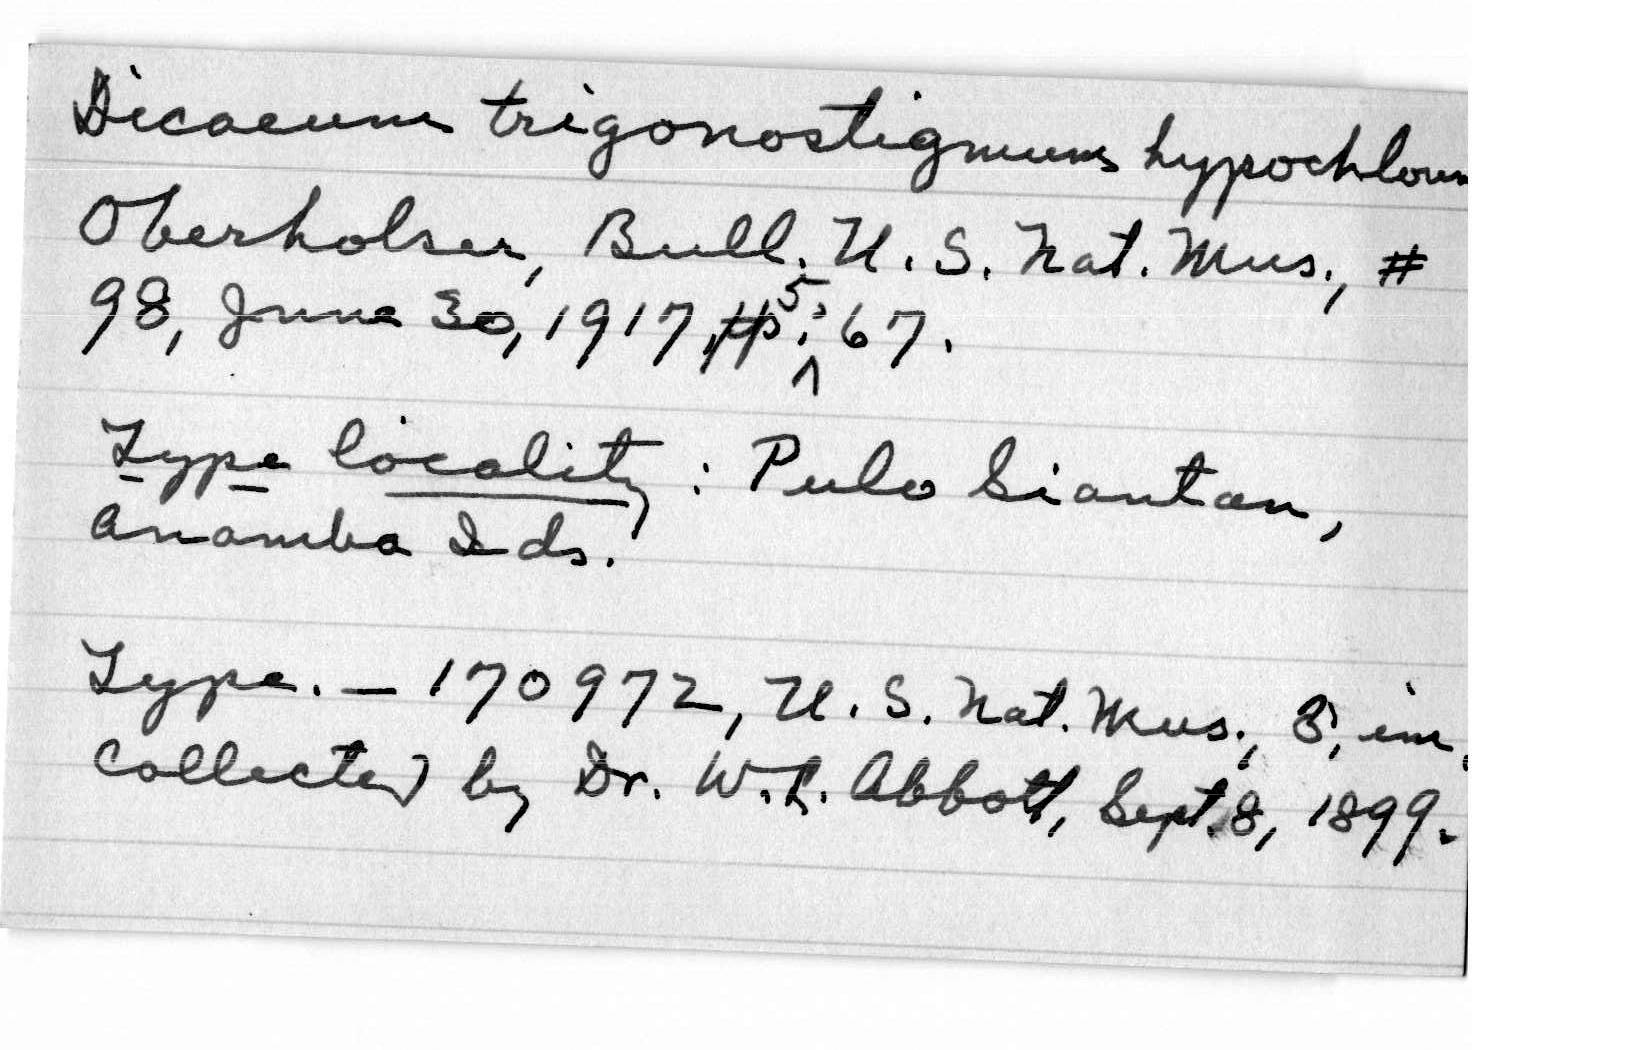 Dicaeum trigonostigmum hypochloum
Oberholser, Bull. U. S. Nat. Mus., #
98, June 30, 1917, pp. 5; 67.
Type locality: Pulo Siantan,
Anamba Ids.
Type. — 170972, U. S. Nat. Mus., ♂, im.
collected by Dr. W. L. Abbott, Sept. 8, 1899.